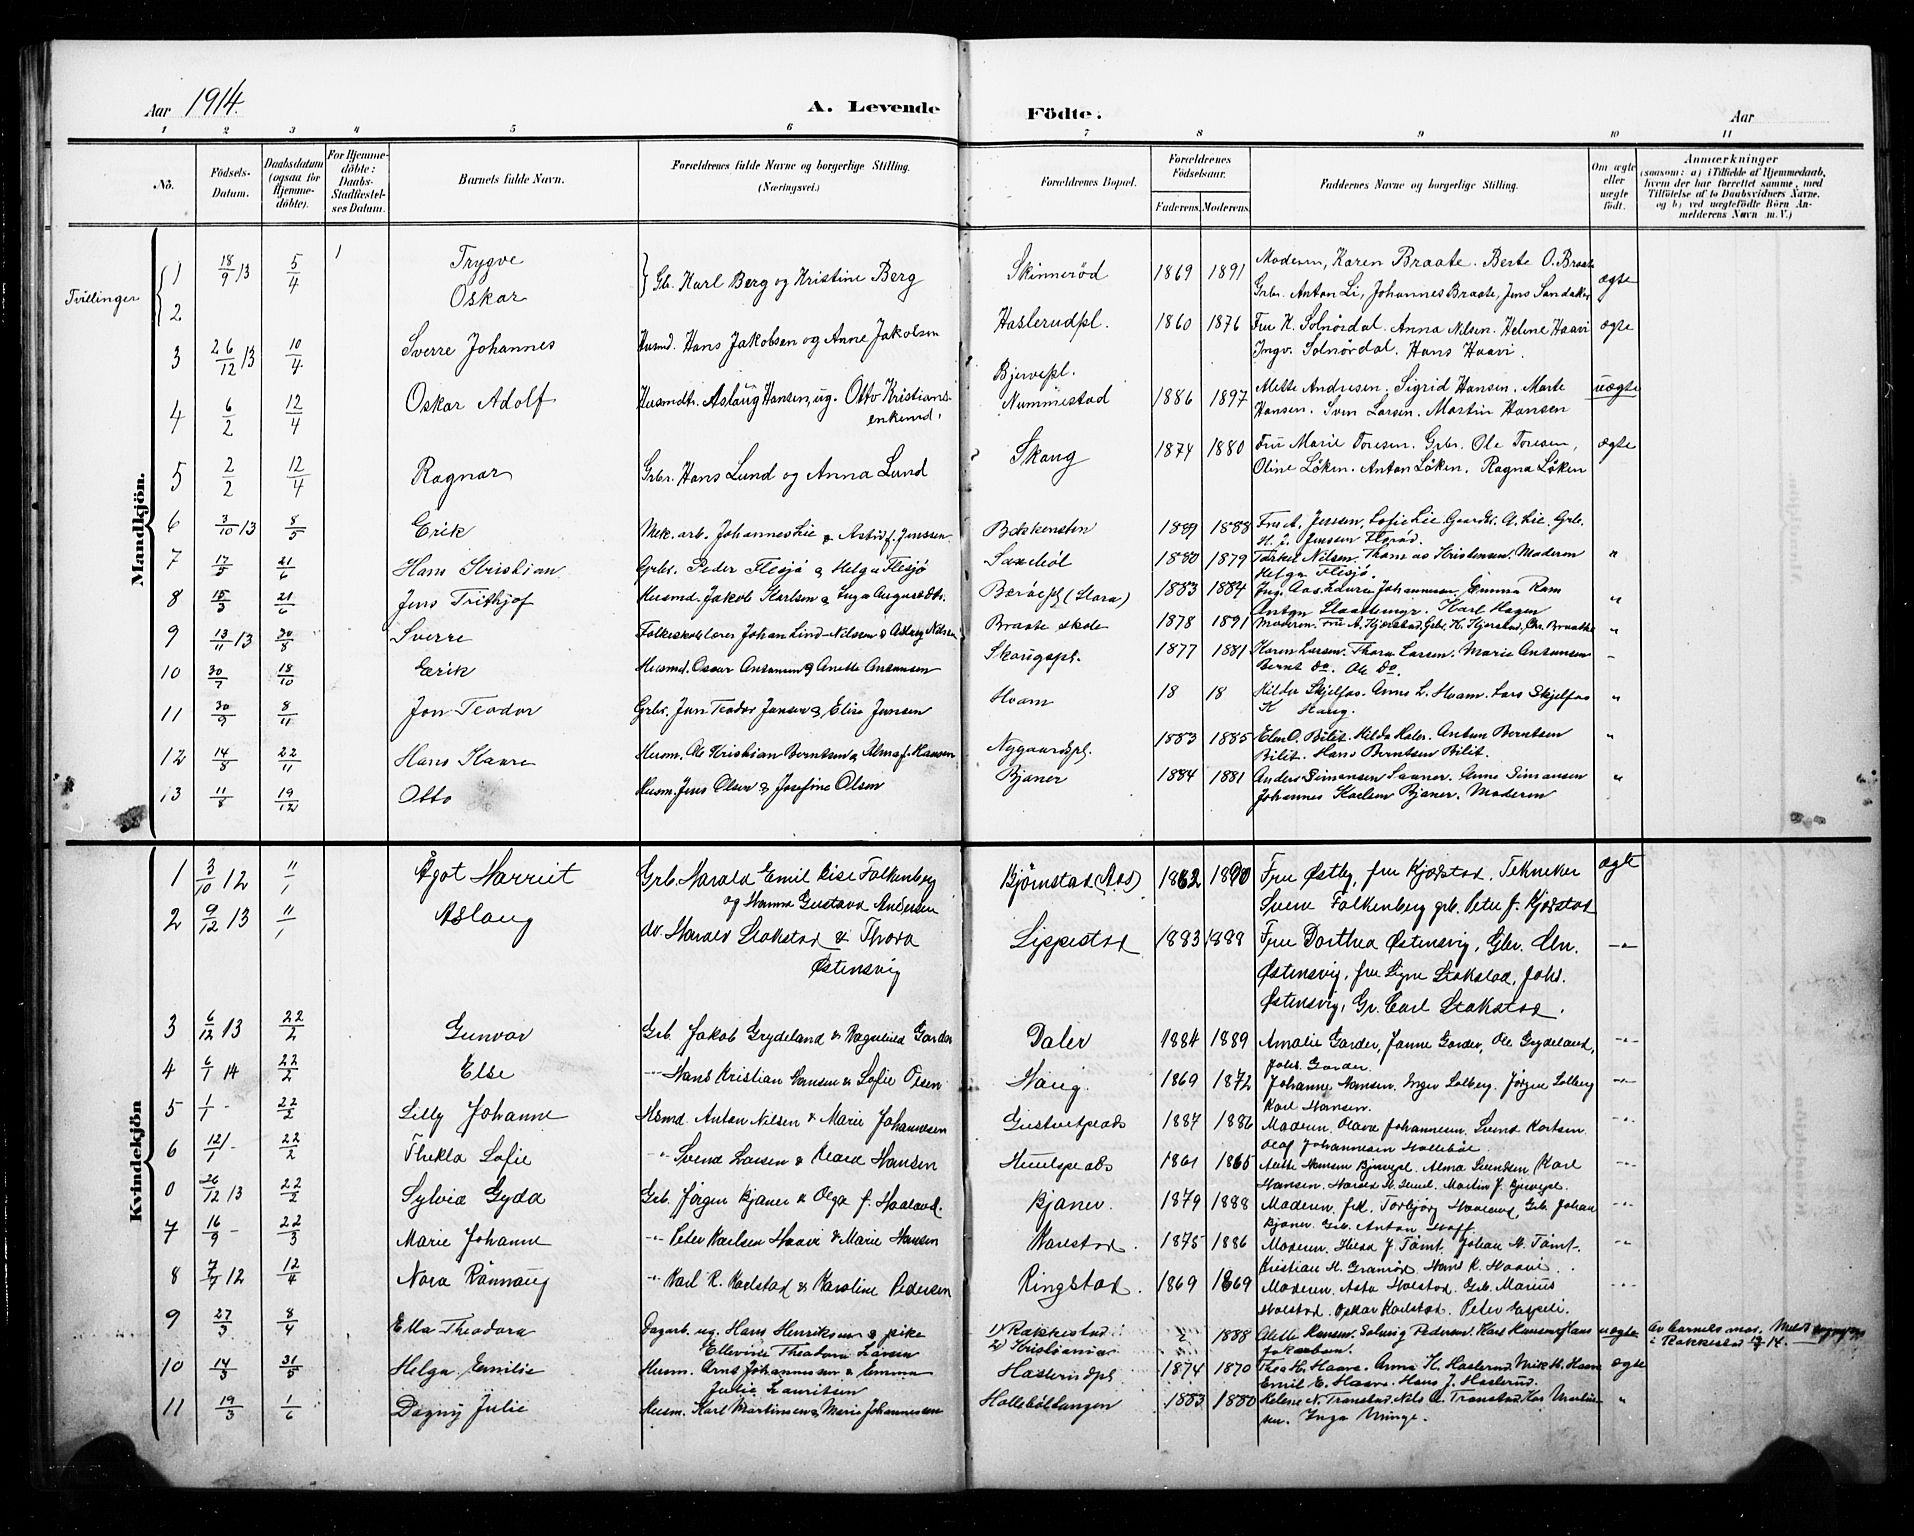 Aar 1914. A. Levende Födte. Aar
1 2 3 4 5 6 7 8 9 10 11
Nö. Födsels-Datum. Daabsdatum (ogsaa for Hjemme-döbte). For Hjemme-döbte: Daabs-Stadfæstel-ses Datum. Barnets fulde Navn. Forældrenes fulde Navne og borgerlige Stilling. (Næringsvei.) Forældrenes Bopæl. Forældrenes Födselsaar. Faderens. Moderens. Faddernes Navne og borgerlige Stilling. Om ægte eller uægte födt. Anmærkninger (saasom: a) i Tilfælde af Hjemmedaab, hvem der har forrettet samme, med Tilföielse af to Daabsvidners Navne. og b) ved uægtefödte Börn An-melderens Navn m. V.)
Mandkjön.
Tvillinger 1 18/9 13 5/4 Trygve } Gb. Karl Berg og Kristine Berg Skinneröd 1869 1891 Moderen, Karen Braate. Berte O. Braate ægte
2 Oskar Grbr. Anton Li, Johannes Braate, Jens Sandaker
3 26/12 13 10/4 Sverre Johannes Husmd. Hans Jakobsen og Anne Jakobsen Haslerudpl. 1860 1876 Fru K. Solnördal. Anna Nilsen. Helene Haavi ægte
Ingv. Solnördal. Hans Haavi.
4 6/2 12/4 Oskar Adolf Husmdtr. Aslaug Hansen, ug. Otto Kristians- Bjervepl. Nummestad 1886 1897 Alette Andresen. Sigrid Hansen. Marte uægte
enkemd. Hansen. Sven Larsen. Martin Hansen
5 2/2 12/4 Ragnar Grbr. Hans Lund og Anna Lund Skaug 1874 1880 Fru Marie Toresen. Grbr. Ole Toresen, ægte
Oline Löken. Anton Löken. Ragna Löken
6 3/10 13 8/5 Erik Mek. arb. Johannes Lie & Astrid f. Jenssen Bekkensten 1889 1888 Fru A. Jenssen, Sofie Lie Gaardb. A. Lie. Grb.
H. J. Jenssen
7 17/5 21/6 Hans Kristian Grbr. Peder Flesjö & Helga Flesjö Saxeböl 1880 1879 Nilsen. Thomas Kristensen. Moderen "
Helga Flesjö.
8 15/3 21/6 Jens Frithjof Husmd. Jakob Karlsen & Inga Augustdtr. Beröepl (Hara) 1883 1884 Johannesen Emma Ram "
Anton Karl Hagen
9 13/11 13 30/8 Sverre Folkeskolelærer Johan Lind-Nilsen & Aslaug Nilsen Braate skole 1878 1891 Moderen. Fru A. Hjerstad, Grb. H. Hjerstad, Chr. Braathe "
10 30/7 18/10 Erik Husmd. Oscar Ansonsen & Anette Ansonsen Skougspl. 1877 1881 Karen Larsen. Thora Larsen. Marie Ansonsen
Bernt do. Ole do.
11 30/9 8/11 Jon Teodor Grbr. Jon Teodor Jensen & Elise Jensen Hvam 18 18 Hilder Skjelfos. Anne L. Hvam. Lars Skjelfos "
K Haug.
12 14/8 22/11 Hans Kaare Husm. Ole Kristian Berntsen & Alma f. Hansen Nygaardspl. 1883 1885 Elen O. Bilit. Hilda Anton Berntsen "
Bilit. Hans Berntsen Bilit.
13 11/8 19/12 Otto Husm. Jens Olsen & Josefine Olsen Bjaner 1884 1881 Anders Simonsen Anne Simonsen "
Johannes Karlsen Bjaner. Moderen
Kvindekjön
1 3/10 12 11/1 Ågot Harriet Grb. Harald Emil Falkenberg Björnstad (Aas) 1862 1870 Fru Østby, fru Kjödstad, Tekniker ægte
og Hanna Gustava Andersen Svein Falkenberg grb. Peter f. Kjödstad
2 9/12 13 11/1 Aslaug do. Harald Stokstad & Thora Lippestad 1883 1888 Fru Dorthea Østensvig, Gbr. Chr. -"-
Østensvig Østensvig, fru Signe Stokstad, Johs.
Østensvig, Gr. Carl Stokstad.
3 6/12 13 22/2 Gunvor Grb. Jakob Grydeland & Ragnhild Garder Daler 1884 1889 Amalie Garder, Janne Garder, Ole Grydeland, -"-
Johs. Garder
4 6/1 14 22/2 Else -"- Hans Kristian Hansen & Sofie Olsen Haug 1869 1872 Johanne Hansen. Inger Solberg. Jörgen Solberg -"-
Karl Hansen.
5 1/1 - 22/2 Lilly Johanne Hsmd. Anton Nilsen & Marie Johannesen 1887 1886 Moderen. Olava Johannesen. Svend Karlsen -"-
Olaf Johannesen Holleböl
6 12/1 - 22/2 Thekla Sofie -"- Svend Larsen & Hansen 1861 1865 Anette Hansen Alma Svendsen Karl -"-
Hansen. Martin J.
0 26/12 13 22/2 Sylvia Gyda Grb. Jörgen Bjaner & Olga f. Haaland. Bjaner. 1879 1888 Moderen. frk. Torbjörg Haaland, Grb. Johan -"-
Bjaner. Grb. Anton Hoff
7 16/9 - 22/3 Marie Johanne -"- Peter Karlsen Haavi & Marie Hansen Karlstad. 1875 1886 Moderen. Hilda J. Tömt. Johan H. Tömt. -"-
Kristian H. Granröd. Hans K. Haavi.
8 7/7 12 12/4 Nora Rönnaug -"- Karl R. Karlstad & Karoline Pedersen Ringstad. 1869 1869 Moderen. Asta Holstad. Grb. Marius -"-
Holstad. Oskar Karlstad. Peter
9 27/3 8/4 Ella Theodora Dagarb. ug. Hans Henriksen & pike 1) Rakkestad ? 1888 Alette Hansen. Solveig Pedersen. Karl Hansen Hans uægte Av barnets mor. Meldt
Ellevine Theodora Larsen 2) Kristiania Jakobsen. i Rakkestad
10 14/3 31/5 Helga Emilie Husm. Arne Johannesen & Emma Haslerudpl. 1874 1870 Thea H. Haave. Anna H. Haslerud. Haave ægte
Julie Lauritsen Emil E. Haave. Hans J. Haslerud.
11 19/3 1/6 Dagny Julie Husm. Karl Martinsen & Marie Johannesen Holleböltangen 1883 1880 Helene N. Transtad. Nels A. Transtad. Kar Martin- "
sen. Inga Minge.